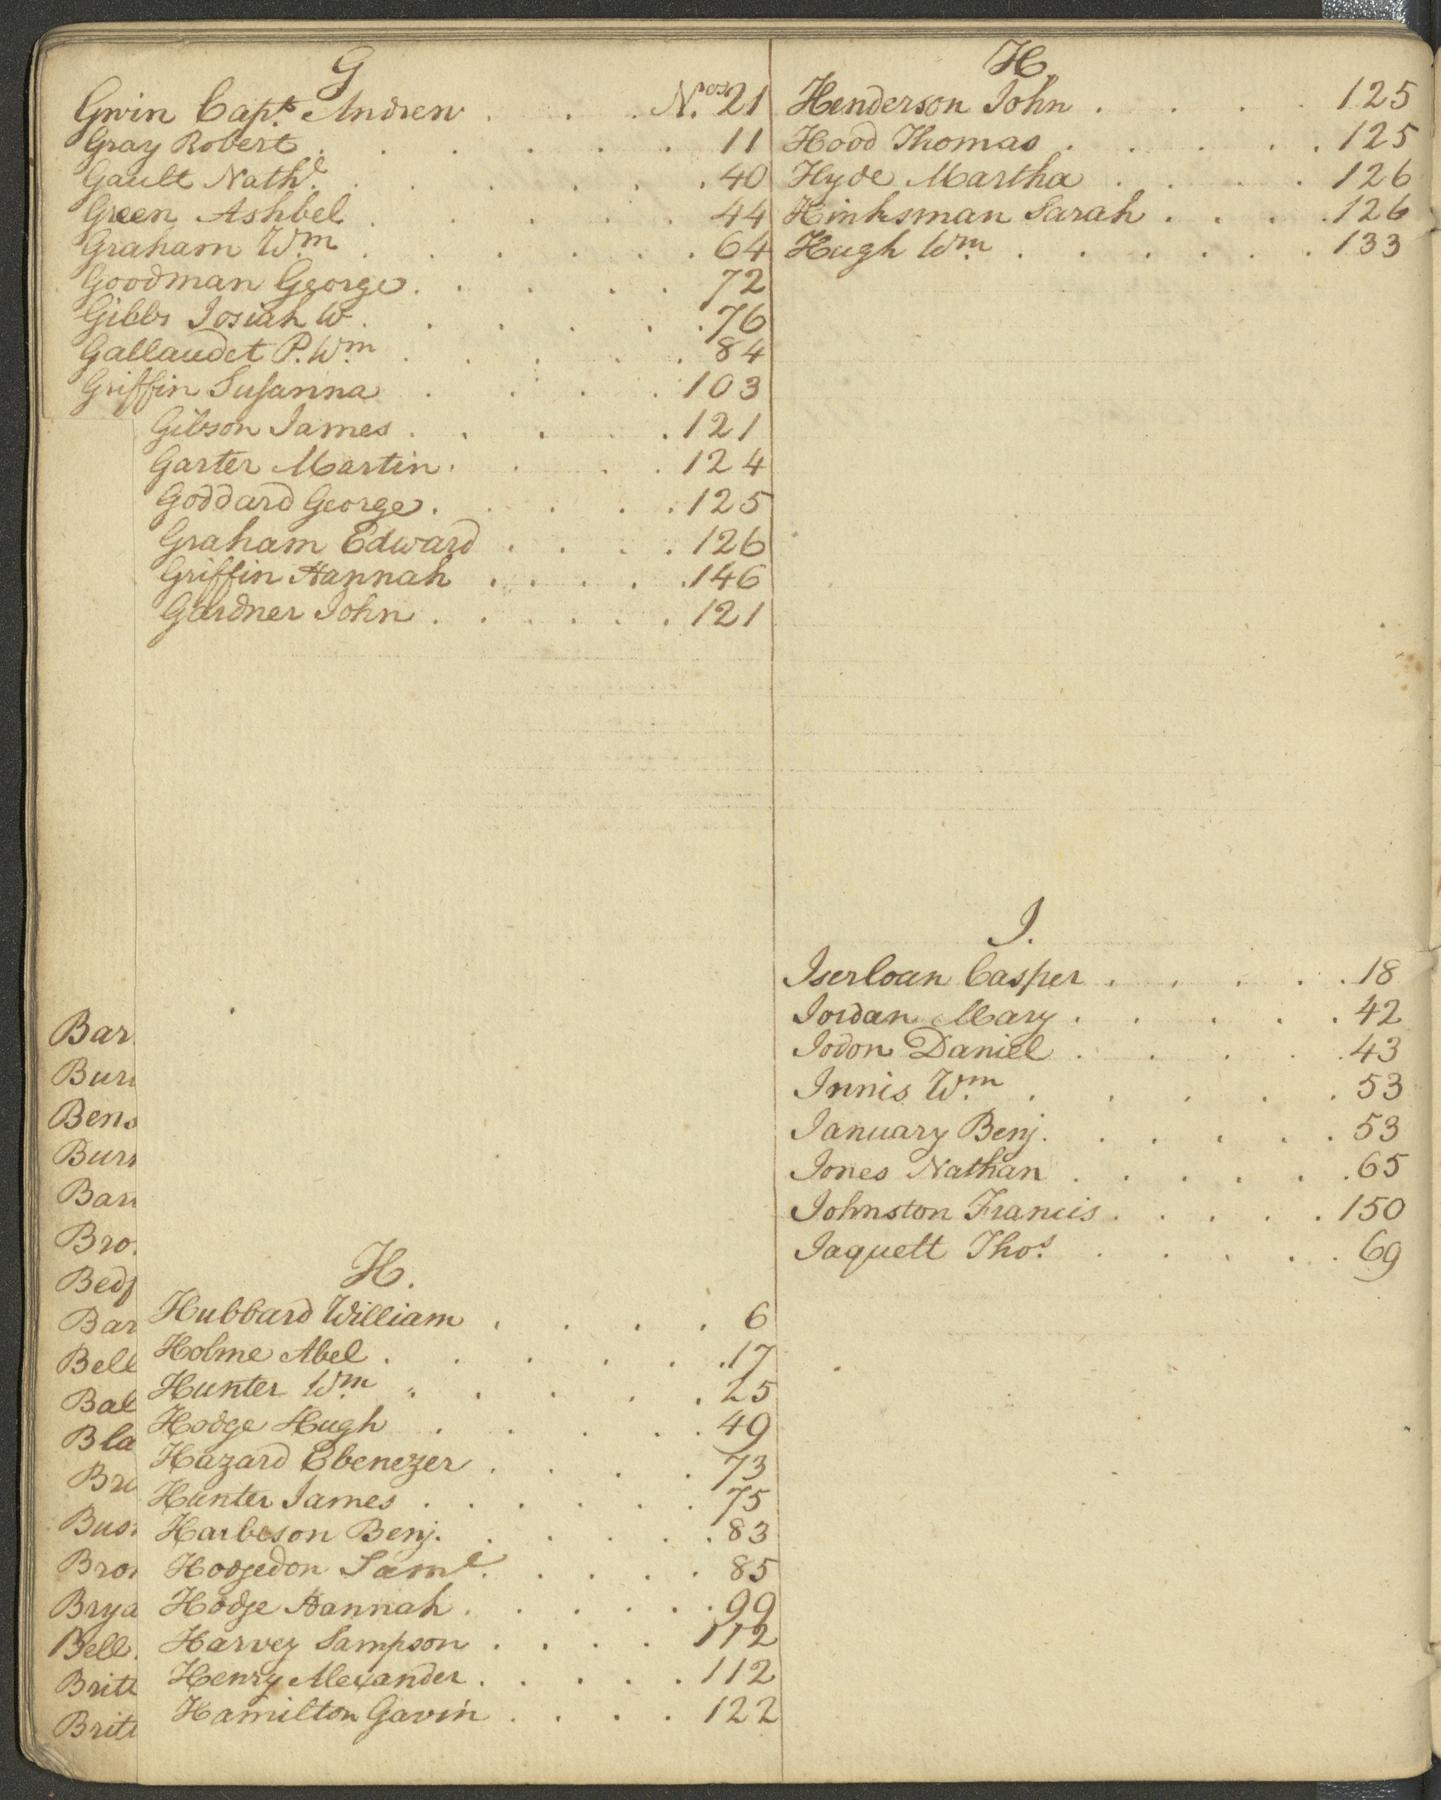 G
Gwin Capt. Andrew . . . Nos. 21
Gray Robert . . . . . . 11
Gault Nathl. . . . . . . 40
Green Ashbel . . . . . 44
Graham Wm. . . . . . . 64
Goodman George . . . . . 72
Gibbs Josiah W . . . . . . 76
Gallaudet P. Wm. . . . . . 84
Griffin Susanna . . . . 103
Gibson James . . . . . 121
Garter Martin . . . . 124
Goddard George . . . . . 125
Graham Edward . . . . 126
Griffin Hannah . . . . . 146
Gardner John . . . . . . 121
H.
Hubbard William . . . . 6
Holme Abel . . . . . . 17
Hunter Wm. . . . . . 25
Hodge Hugh . . . . . . 49
Hazard Ebenezer . . . . 73
Hunter James . . . . . . 75
Harbeson Benj. . . . . . 83
Hodgedon Saml. . . . . . 85
Hodge Hannah . . . . . . 99
Harvey Sampson . . . . 112
Henry Alexander . . . . . 112
Hamilton Gavin . . . . 122
Bar
Bur
Bens
Burr
Barr
Bro
Bedf
Bar
Bell
Bal
Bla
Bro
Bus
Bron
Brya
Bell
Britt
Britt
H.
Henderson John . . . . 125
Hood Thomas . . . . . 125
Hyde Martha . . . . 126
Hinksman Sarah . . . . 126
Hugh Wm. . . . . . . 133
I.
Iserloan Casper . . . . . 18
Iordan Mary . . . . . 42
Iodon Daniel . . . . . 43
Innis Wm. . . . . . 53
Ianuary Benj. . . . . . 53
Iones Nathan . . . . . . 65
Iohnston Francis . . . . . 150
Iaquett Thos. . . . . . 69